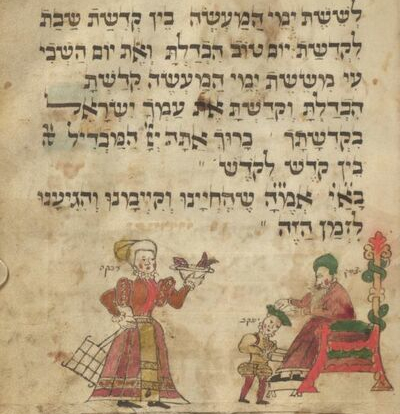 לששת ימי המעשה בין קדשת שבת
לקדשת יום טוב הבדלת ואת יום השבי
עי מששת ימי המעשה קדשת
הבדלת וקדשת את עמך ישראל
בקדשתך ברוך אתה יי המבדיל
בין קדש לקדש
בא״י אמ״ה שהחיינו וקיימנו והגיענו
לזמן הזה
רבקה
יעקב
יצחק